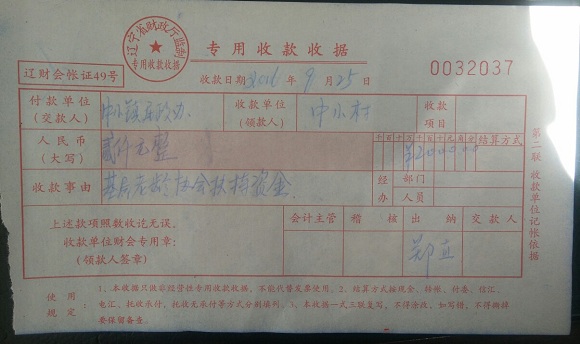 辽宁省财政厅监制
专用收款收据
专用收款收据
辽财会帐证49号
收款日期2016年9月25日
0032037
付款单位
(交款人)
收款单位
(领款人)
中小村
收款
项目
人民币
(大写)
贰仟元整
千百十万千百十元角分
¥200000
结算方式
收款事由
基层老龄协会扶持资金
经办
部门
人员
上述款项照数收讫无误。
收款单位财会专用章:
(领款人签章)
会计主管
稽核
出纳
交款人
郑
第二联 收款单位记帐依据
使用规定:
1、本收据只做非经营性专用收款收据,不能代替发票使用。2、结算方式按现金、转帐、付委、信汇、
电汇、托收承付、托收无承付等方式分别填列。3、本收据一式三联复写,不得涂改,如写错,不得撕掉
要保留备查。